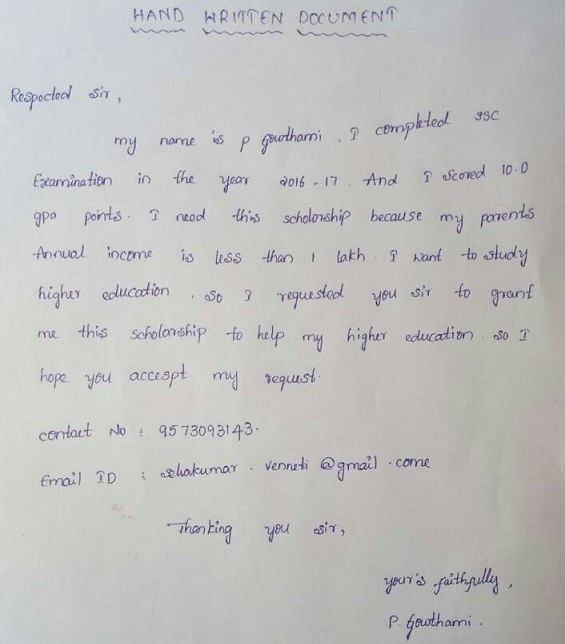 HAND WRITTEN DOCUMENT
Respected sir,
my name is P. Gowthami. I completed SSC
Examination in the year 2016-17. And I scored 10.0
gpa points. I need this scholorship because my parents
Annual income is less than 1 lakh. I want to study
higher education. so I requested you sir to grant
me this scholarship to help my higher education. so I
hope you accespt my request.
contact No : 9573093143.
Email ID : . venneti @gmail .come
Thanking you sir,
your's faithfully,
P. Gowthami.